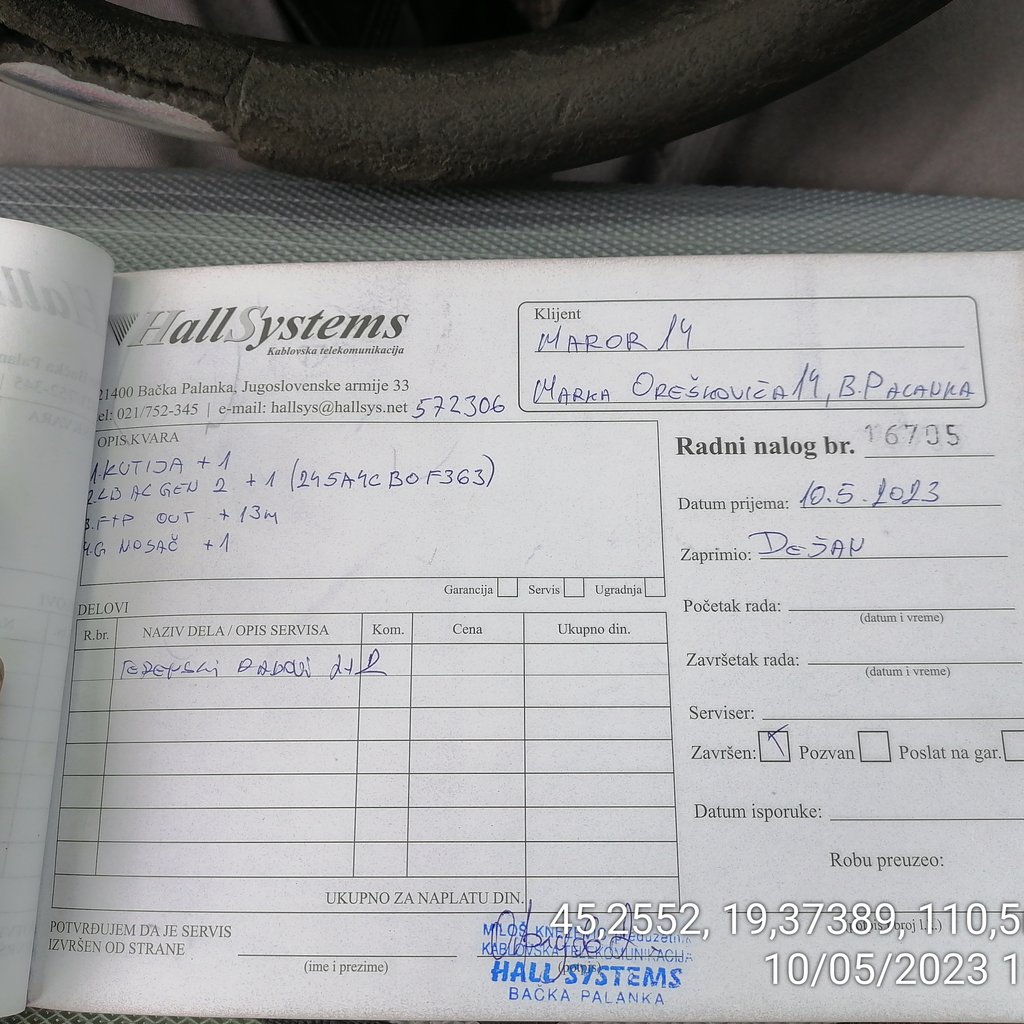 HallSystems
Kablovska telekomunikacija
21400 Bačka Palanka, Jugoslovenske armije 33
tel: 021/752-345 | e-mail: hallsys@hallsys.net 572306
Klijent
MAROR 14
MARKA OREŠKOVIĆA 14, B.PALANKA
OPIS KVARA
1. KUTIJA + 1
2. LB AC GEN 2 + 1 (245A4CB0F363)
3. FTP OUT + 13m
4. G NOSAČ + 1
Garancija Servis Ugradnja
Radni nalog br. 16705
Datum prijema: 10.5.2023
Zaprimio: DEJAN
Početak rada:
(datum i vreme)
Završetak rada:
(datum i vreme)
Serviser:
Završen: Pozvan Poslat na gar.
Datum isporuke:
Robu preuzeo:
DELOVI
R.br. NAZIV DELA / OPIS SERVISA Kom. Cena Ukupno din.
TERENSKI RADOVI
UKUPNO ZA NAPLATU DIN.
POTVRĐUJEM DA JE SERVIS
IZVRŠEN OD STRANE
(ime i prezime)
(potpis)
MILOŠ
KABLOVSKA TELEKOMUNIKACIJA
HALL SYSTEMS
BAČKA PALANKA
45,2552, 19,37389, 110,5
10/05/2023 1